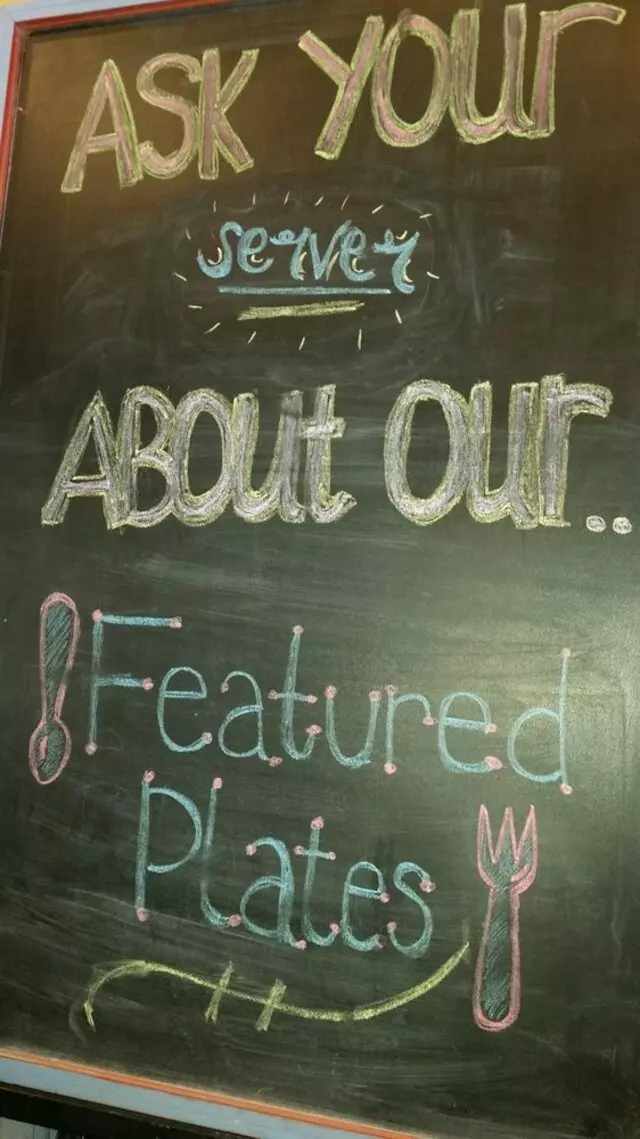 ASK YOUr
server
ABOUt OUr..
Featured
Plates